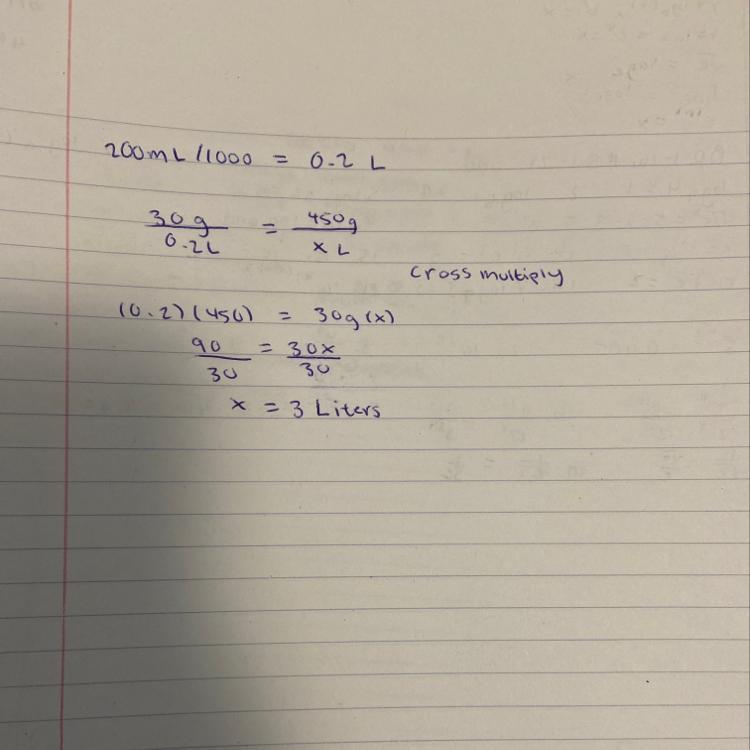 200mL/1000 = 0.2 L
30g/0.2L = 450g/x L
cross multiply
(0.2)(450) = 30g(x)
90/30 = 30x/30
x = 3 Liters